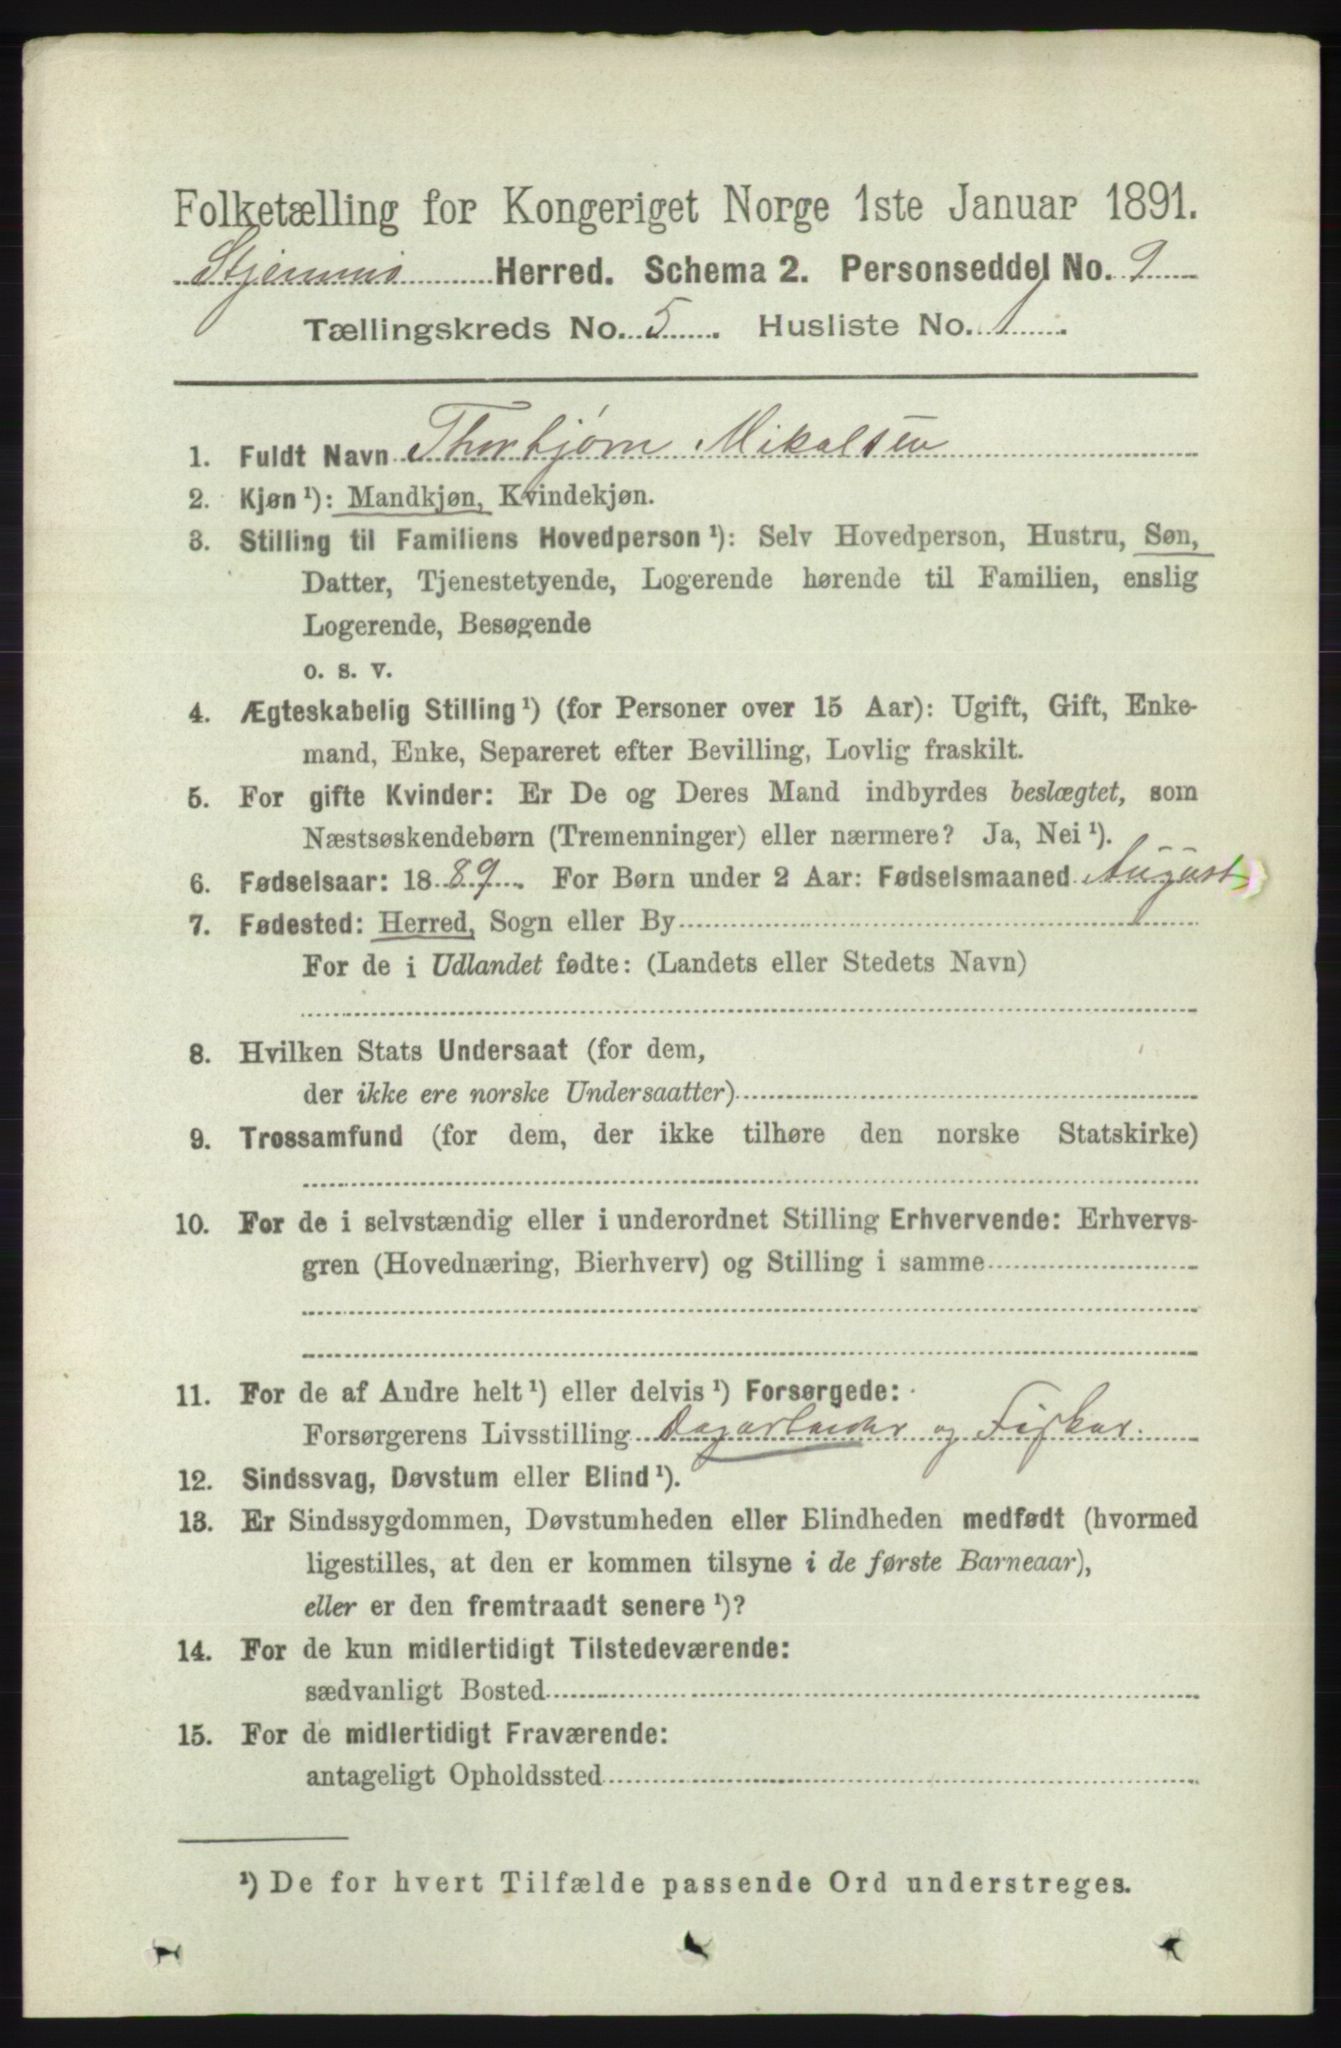 Folketælling for Kongeriget Norge 1ste Januar 1891.
Stjernnø Herred. Schema 2. Personseddel No. 9
Tællingskreds No. 5. Husliste No. 1.
1. Fuldt Navn Thorbjørn Mikalsen
2. Kjøn ¹): Mandkjøn, Kvindekjøn.
3. Stilling til Familiens Hovedperson ¹): Selv Hovedperson, Hustru, Søn,
Datter, Tjenestetyende, Logerende hørende til Familien, enslig
Logerende, Besøgende
o. s. v.
4. Ægteskabelig Stilling ¹) (for Personer over 15 Aar): Ugift, Gift, Enke-
mand, Enke, Separeret efter Bevilling, Lovlig fraskilt.
5. For gifte Kvinder: Er De og Deres Mand indbyrdes beslægtet, som
Næstsøskendebørn (Tremenninger) eller nærmere? Ja, Nei ¹).
6. Fødselsaar: 1889. For Børn under 2 Aar: Fødselsmaaned August
7. Fødested: Herred, Sogn eller By
For de i Udlandet fødte: (Landets eller Stedets Navn)
8. Hvilken Stats Undersaat (for dem,
der ikke ere norske Undersaatter)
9. Trossamfund (for dem, der ikke tilhøre den norske Statskirke)
10. For de i selvstændig eller i underordnet Stilling Erhvervende: Erhvervs-
gren (Hovednæring, Bierhverv) og Stilling i samme
11. For de af Andre helt ¹) eller delvis ¹) Forsørgede:
Forsørgerens Livsstilling Dagarbeider og Fisker.
12. Sindssvag, Døvstum eller Blind ¹).
13. Er Sindssygdommen, Døvstumheden eller Blindheden medfødt (hvormed
ligestilles, at den er kommen tilsyne i de første Barneaar),
eller er den fremtraadt senere ¹)?
14. For de kun midlertidigt Tilstedeværende:
sædvanligt Bosted
15. For de midlertidigt Fraværende:
antageligt Opholdssted
¹) De for hvert Tilfælde passende Ord understreges.